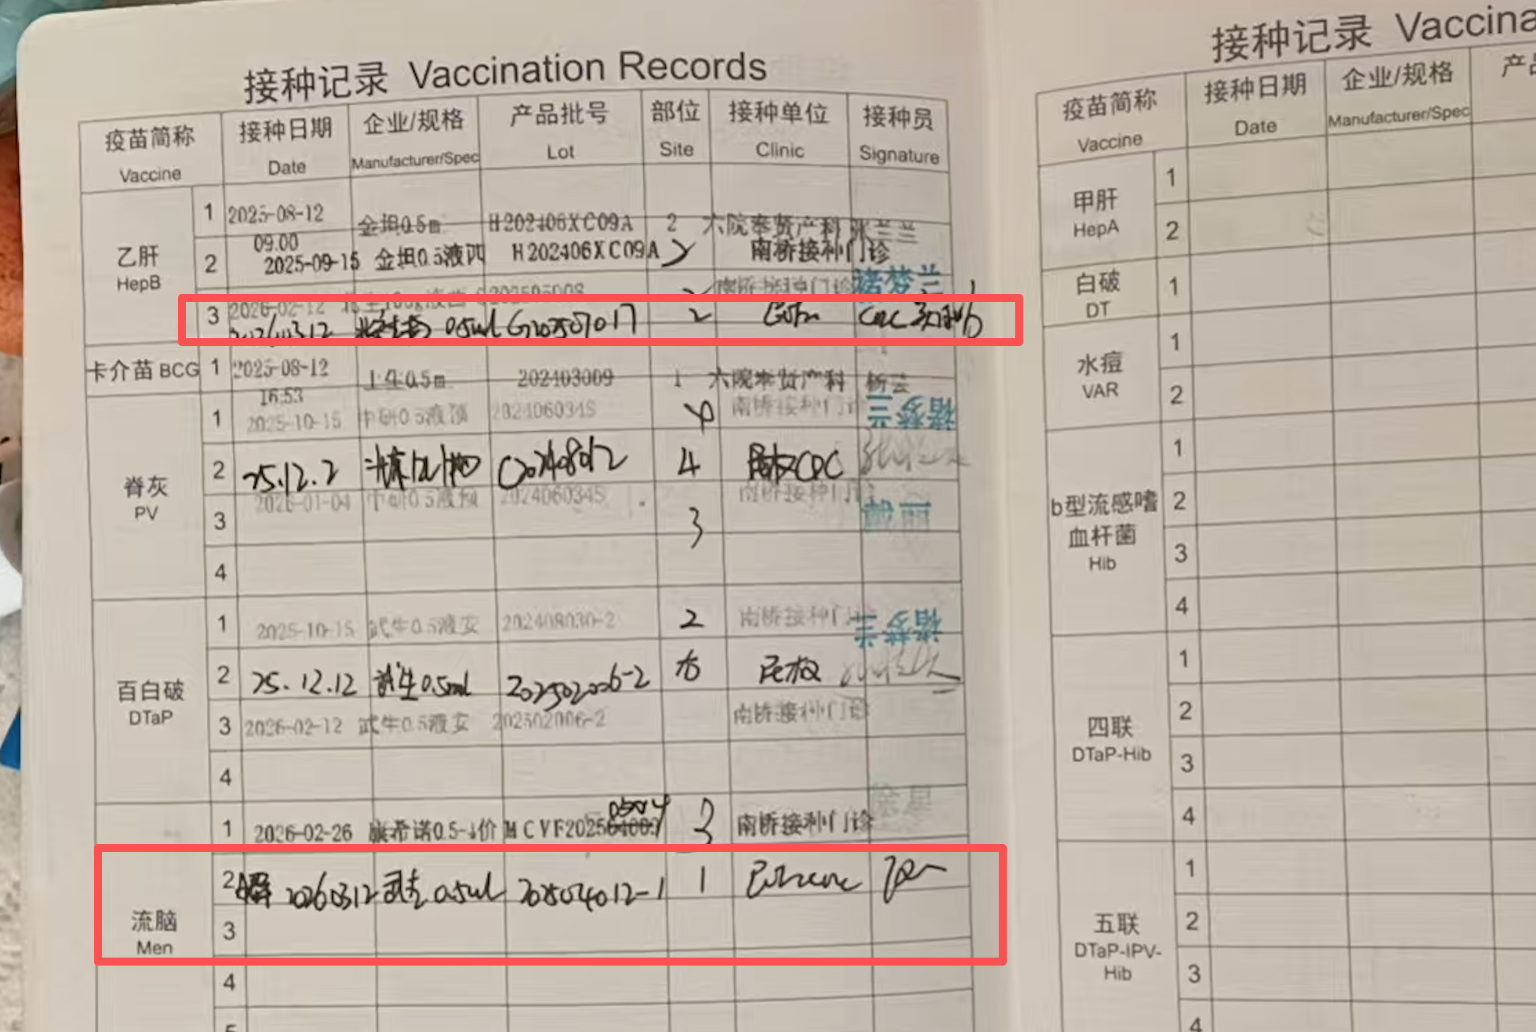 接种记录 Vaccination Records
疫苗简称 Vaccine 接种日期 Date 企业/规格 Manufacturer/Spec 产品批号 Lot 部位 Site 接种单位 Clinic 接种员 Signature
乙肝 HepB
1 2025-08-12 09.00 金坦0.5m H202406XC09A 2 六院奉贤产科 张兰兰
2 2025-09-15 金坦0.5液西 H202406XC09A 南桥接种门诊 褚梦兰
3 2026-02-12 南桥接种门诊
20260312 0.5ml G202507017 2
卡介苗 BCG 1 2025-08-12 16:53 上生0.5m 202403009 1 六院奉贤产科
脊灰 PV
1 2025-10-15 中研0.5液预 202406034S 南桥接种门诊 褚梦兰
2 25.12.2 4 CDC
3 2026-01-04 中研0.5液预 202406034S 3 南桥接种门诊
4
百白破 DTaP
1 2025-10-15 武生0.5液安 202408030-2 2 南桥接种门诊 褚梦兰
2 25.12.12 武生0.5ml 202502006-2
3 2026-02-12 武生0.5液安 202502006-2 南桥接种门诊
4
流脑 Men
1 2026-02-26 康希诺0.5-4价 MCVF2025 3 南桥接种门诊
2 20260312 0.5ml 202504012-1 1
3
4
5
接种记录 Vaccina
疫苗简称 Vaccine 接种日期 Date 企业/规格 Manufacturer/Spec 产品
甲肝 HepA
1
2
白破 DT 1
水痘 VAR
1
2
b型流感嗜血杆菌 Hib
1
2
3
4
四联 DTaP-Hib
1
2
3
4
五联 DTaP-IPV-Hib
1
2
3
4